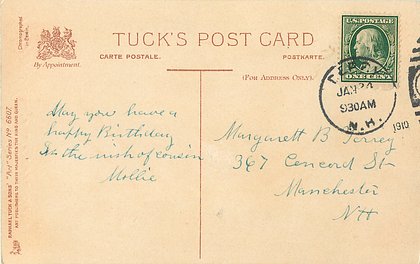 Chromographed
in Saxony.
By Appointment.
TUCK'S POST CARD
CARTE POSTALE.
POSTKARTE.
(FOR ADDRESS ONLY).
U.S. POSTAGE
ONE CENT
JAN 24
930AM
N.H.
1910
May you have a
happy Birthday
Is the wish of cousin
Mollie
Margarett B
367 Concord St
Manchester
NH
RAPHAEL TUCK & SONS' "Art" Series No. 6607.
ART PUBLISHERS TO THEIR MAJESTIES THE KING AND QUEEN.